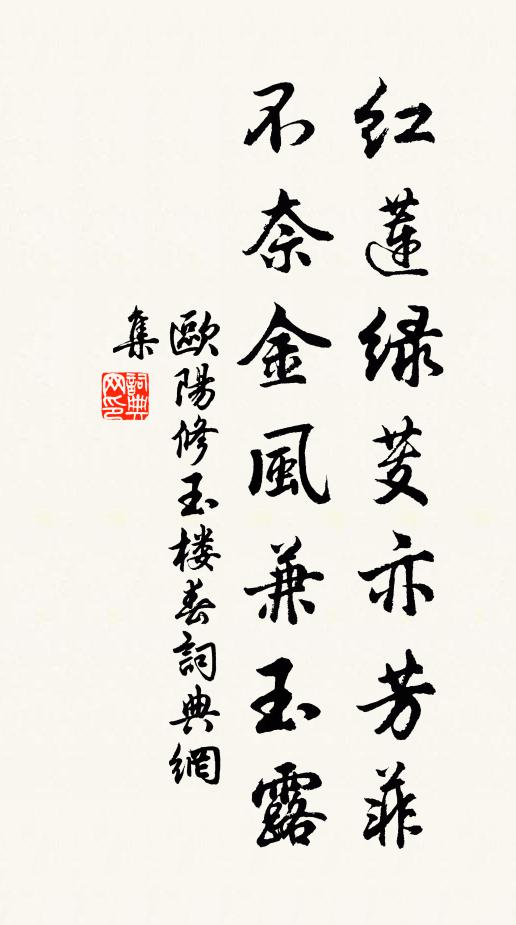 红莲绿芰亦芳菲
不奈金風兼玉露
歐陽修玉楼春詞典網
集
詞典网印